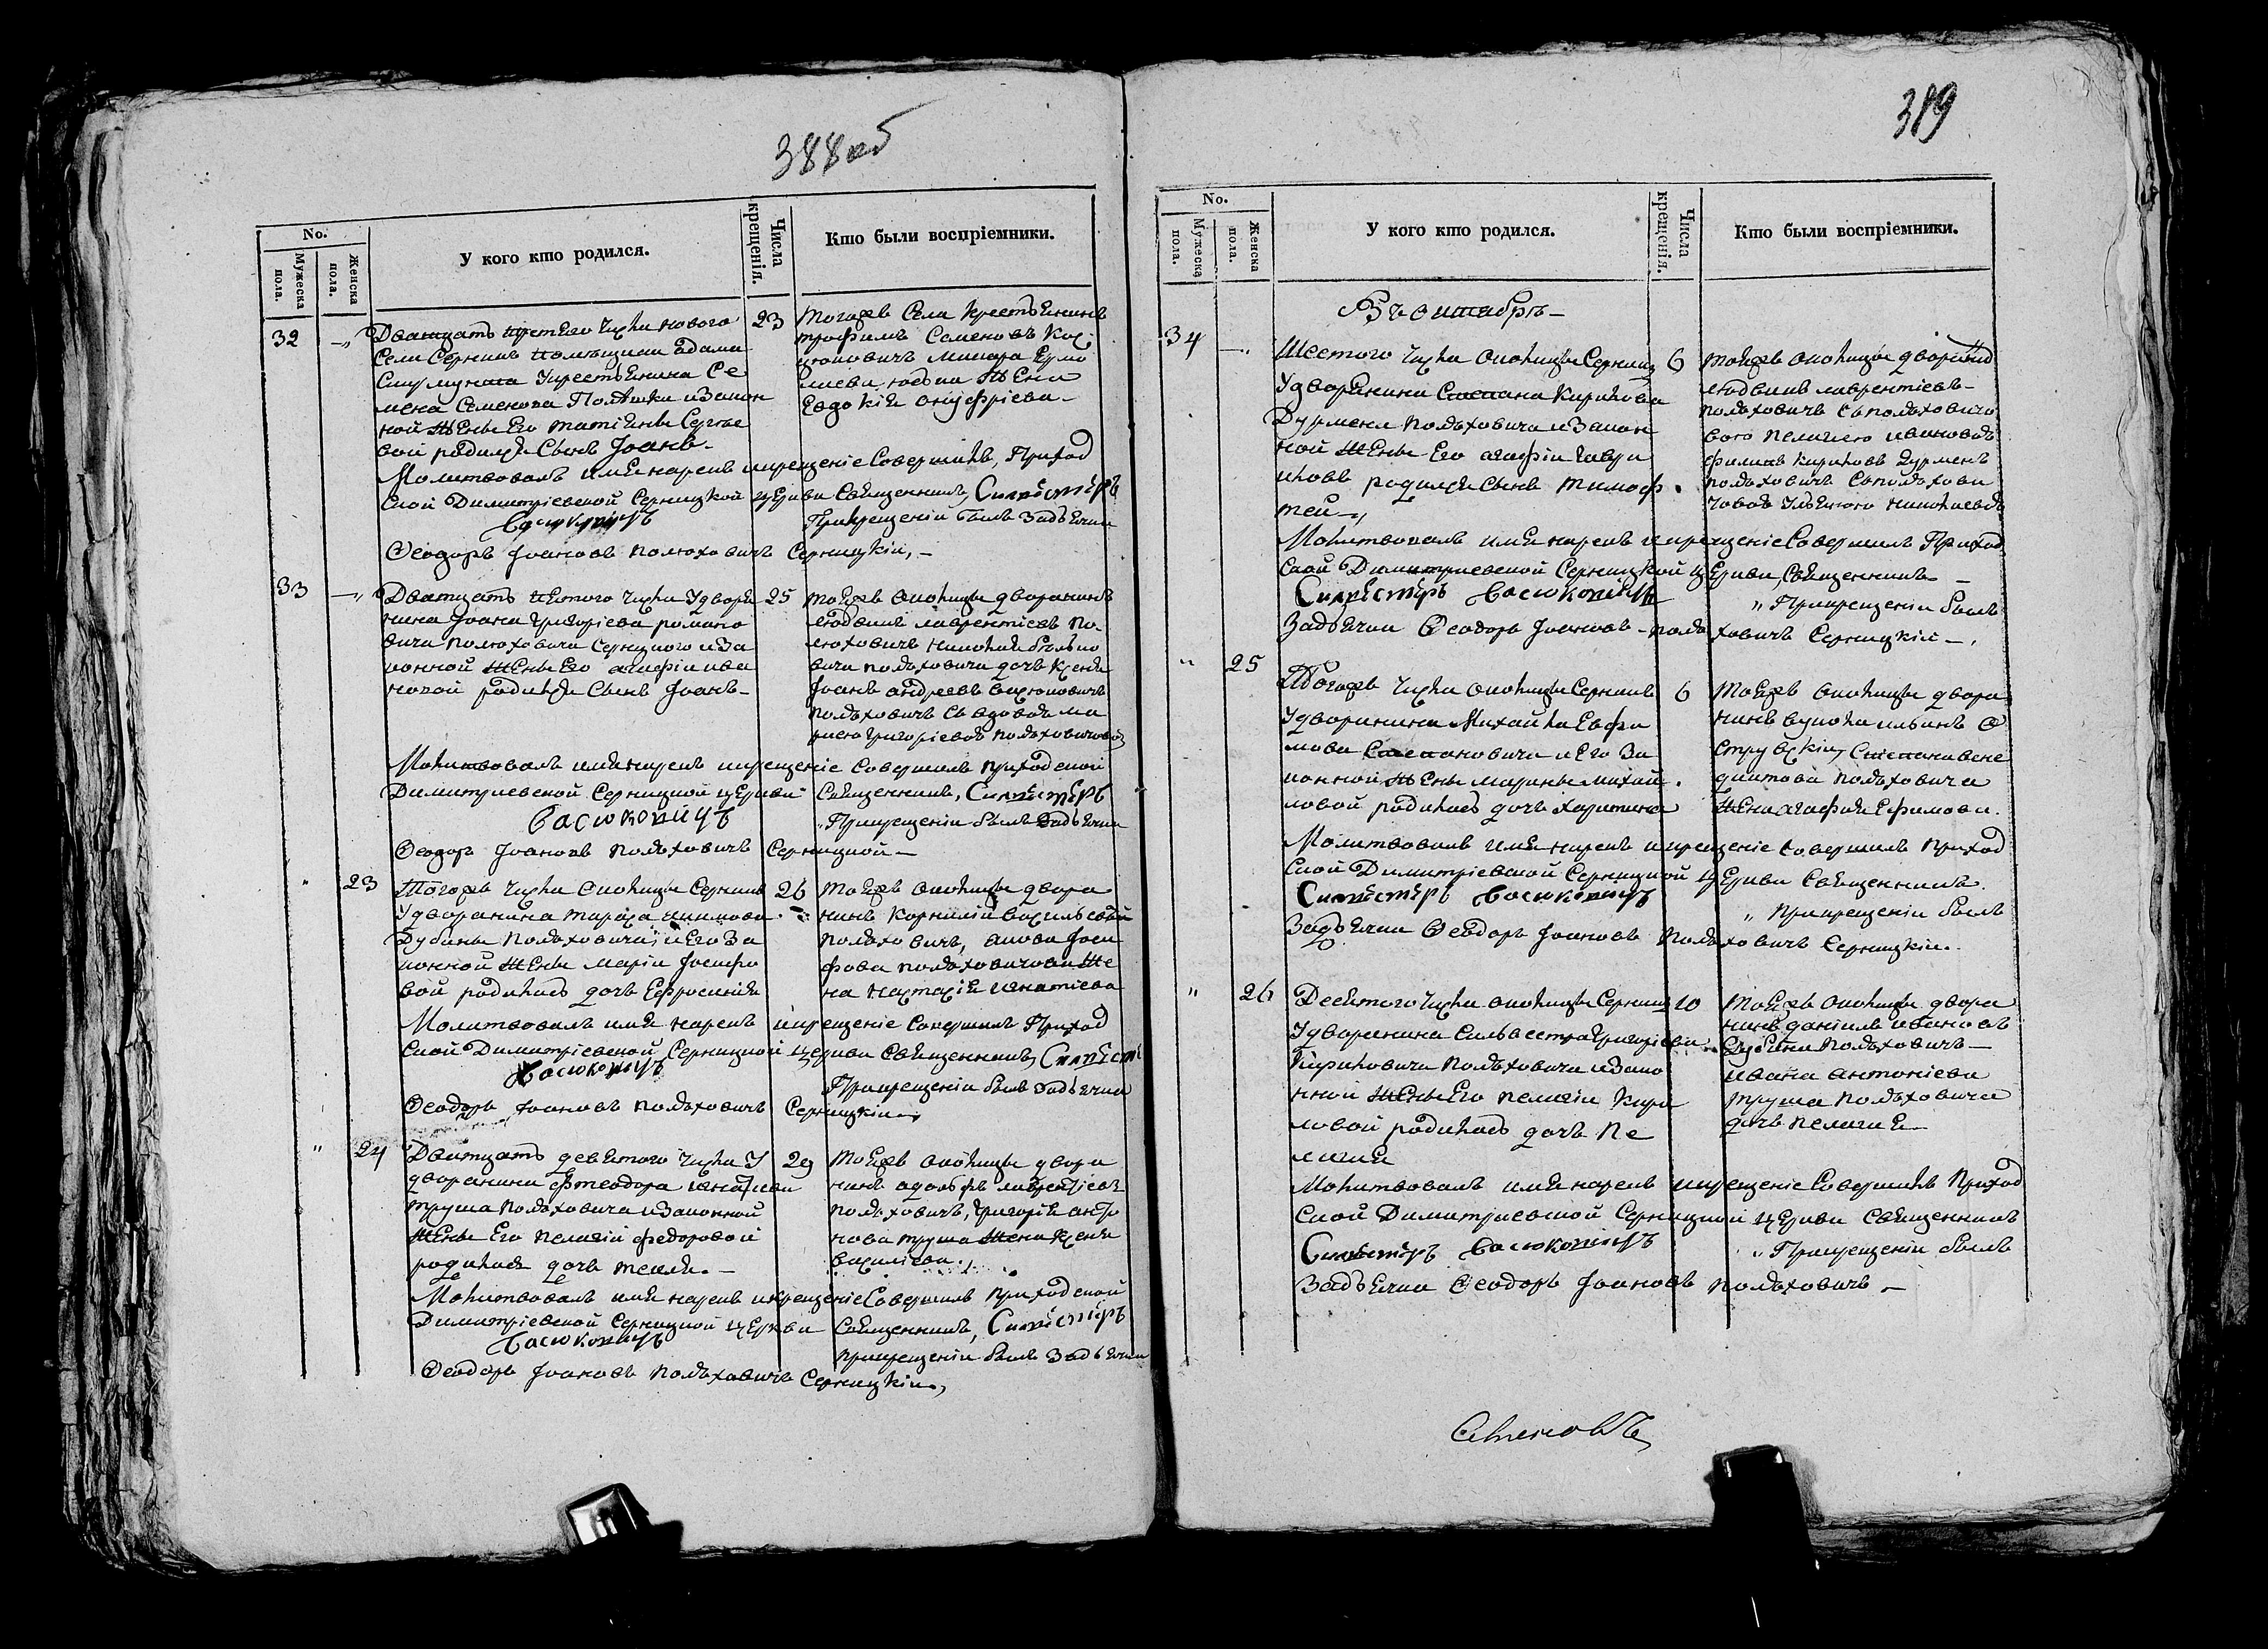 388 об
No.
Мужеска пола.
Женска пола.
У кого кто родился.
Числа крещенія.
Кто были воспріемники.
32
Дватцать третъего числа нового
Села Серникъ помещика адама
крестьянина Се
мена Семенова и закон
ной жены Его татіяны Сергее
вой родился Сынъ Іоанъ
23
Тогожъ Села крестьянинъ
трофимъ Семеновъ
жена
Евдокія онуфріева
Молитвовалъ имя нарекъ и крещеніе Совершилъ, Приход
ской Димитріевской Серницкой церкви Священникъ, Сильвестръ
Васюковичъ
При крещеніи былъ Задъячка
Феодоръ Іоановъ Полюховичъ Серницкій,
33
Дватцать пятого числа У дворя
нина Іоана григоріева романо
вича Полюховича Серницкого и за
конной жены Его агафіи ива
новой родился Сынъ Іоанъ
25
тоеяжъ околицы дворянинъ
людвикъ лаврентіевъ по
люховичъ
вича польховича дочь Ксенія
Іоанъ андреевъ васюковичъ
польховичъ Съ вдовою ма
риею григоріевою польховичовою
Молитвовалъ имя нарекъ и крещеніе Совершилъ приходской
Димитриевской Серницкой церкви Священникъ, Сильвестръ
Васюковичъ
При крещеніи былъ Задъячка
Феодоръ Іоановъ польховичъ Серницкой
23
Тогожъ числа околицы Серникъ
У дворанина тараса якимова
Дубины польховича, и Его за
конной жены маріи Іосифо
вой родилась дочь Ефросинія
26
тоеяжъ околицы двора
нинъ корнилій василіевъ
польховичъ, якова Іоси
фова польховичова же
на настасія игнатіева
Молитвовалъ имя нарекъ и крещеніе Совершилъ Приход
ской Димитріевской Серницкой церкви Священникъ, Сильвестръ
Васюковичъ
При крещеніи былъ Задъячка
Феодоръ Іоановъ польховичъ Серницкій,
24
Дватцать девятого числа У
дворанина феодора игнатіева
труша польховича и законной
жены Его пелагіи федоровой
родилася дочь текля.
29
тоеяжъ околицы двора
нинъ адольфъ лаврентіевъ
польховичъ, григорія анто
нова труша жена ксенія
василіева,
Молитвовалъ имя нарекъ и крещеніе Совершилъ приходской
Димитріевской Серницкой церкви Священникъ, Сильвестръ
Васюковичъ
При крещеніи былъ Задъячка
Феодоръ Іоановъ польховичъ Серницкій,
389
No.
Мужеска пола.
Женска пола.
У кого кто родился.
Числа крещенія.
Кто были воспріемники.
Въ октябрѣ
34
Шестого числа околицы Серникъ
У дворянина Степана Кирилова
Дурмена польховича и закон
ной жены Его агафіи гаври
иловы родился Сынъ тимоф
тей
6
тоеяжъ околицы дворянинъ
людвикъ лаврентіевъ
польховичъ Съ польховичо
вою пелагиею ивановою
филипъ кириловъ дурменъ
польховичъ Съ польхови
човою ульяною николаевою
Молитвовалъ имя нарекъ и крещеніе Совершилъ Приход
ской Димитриевской Серницкой церкви, Священникъ
Сильвестръ Васюковичъ
При крещеніи былъ
Задъячка Феодоръ Іоановъ польховичъ Серницкій
25
Тогожъ числа околицы Серникъ
У дворянина Михайла Евфи
мова Степановича и Его за
конной жены марины михай
ловой родилась дочь харитина
6
тоеяжъ околицы двора
нинъ вукола ильинъ О
струвскій, Степана вене
диктова польховича
жена агафия Ефимова.
Молитвовалъ имя нарекъ и крещеніе Совершилъ Приход
ской Димитріевской Серницкой церкви Священникъ.
Сильвестръ Васюковичъ
При крещеніи былъ
Задъячка Феодоръ Іоановъ польховичъ Серницкій.
26
Десятого числа околицы Серникъ
У дворанина Сильвестра григоріева
Кириловича польховича и зако
нной жены Его пелагіи Кири
ловой родилась дочь Пе
лагия
10
тоеяжъ околицы двора
нинъ даніилъ ивановъ
Дубина польховичъ
ивана антоніева
труша польховича
дочь пелагия
Молитвовалъ имя нарекъ и крещеніе Совершилъ Приход
ской Димитриевской Серницкой церкви Священникъ
Сильвестръ Васюковичъ
При крещеніи былъ
Задъячка Феодоръ Іоановъ польховичъ